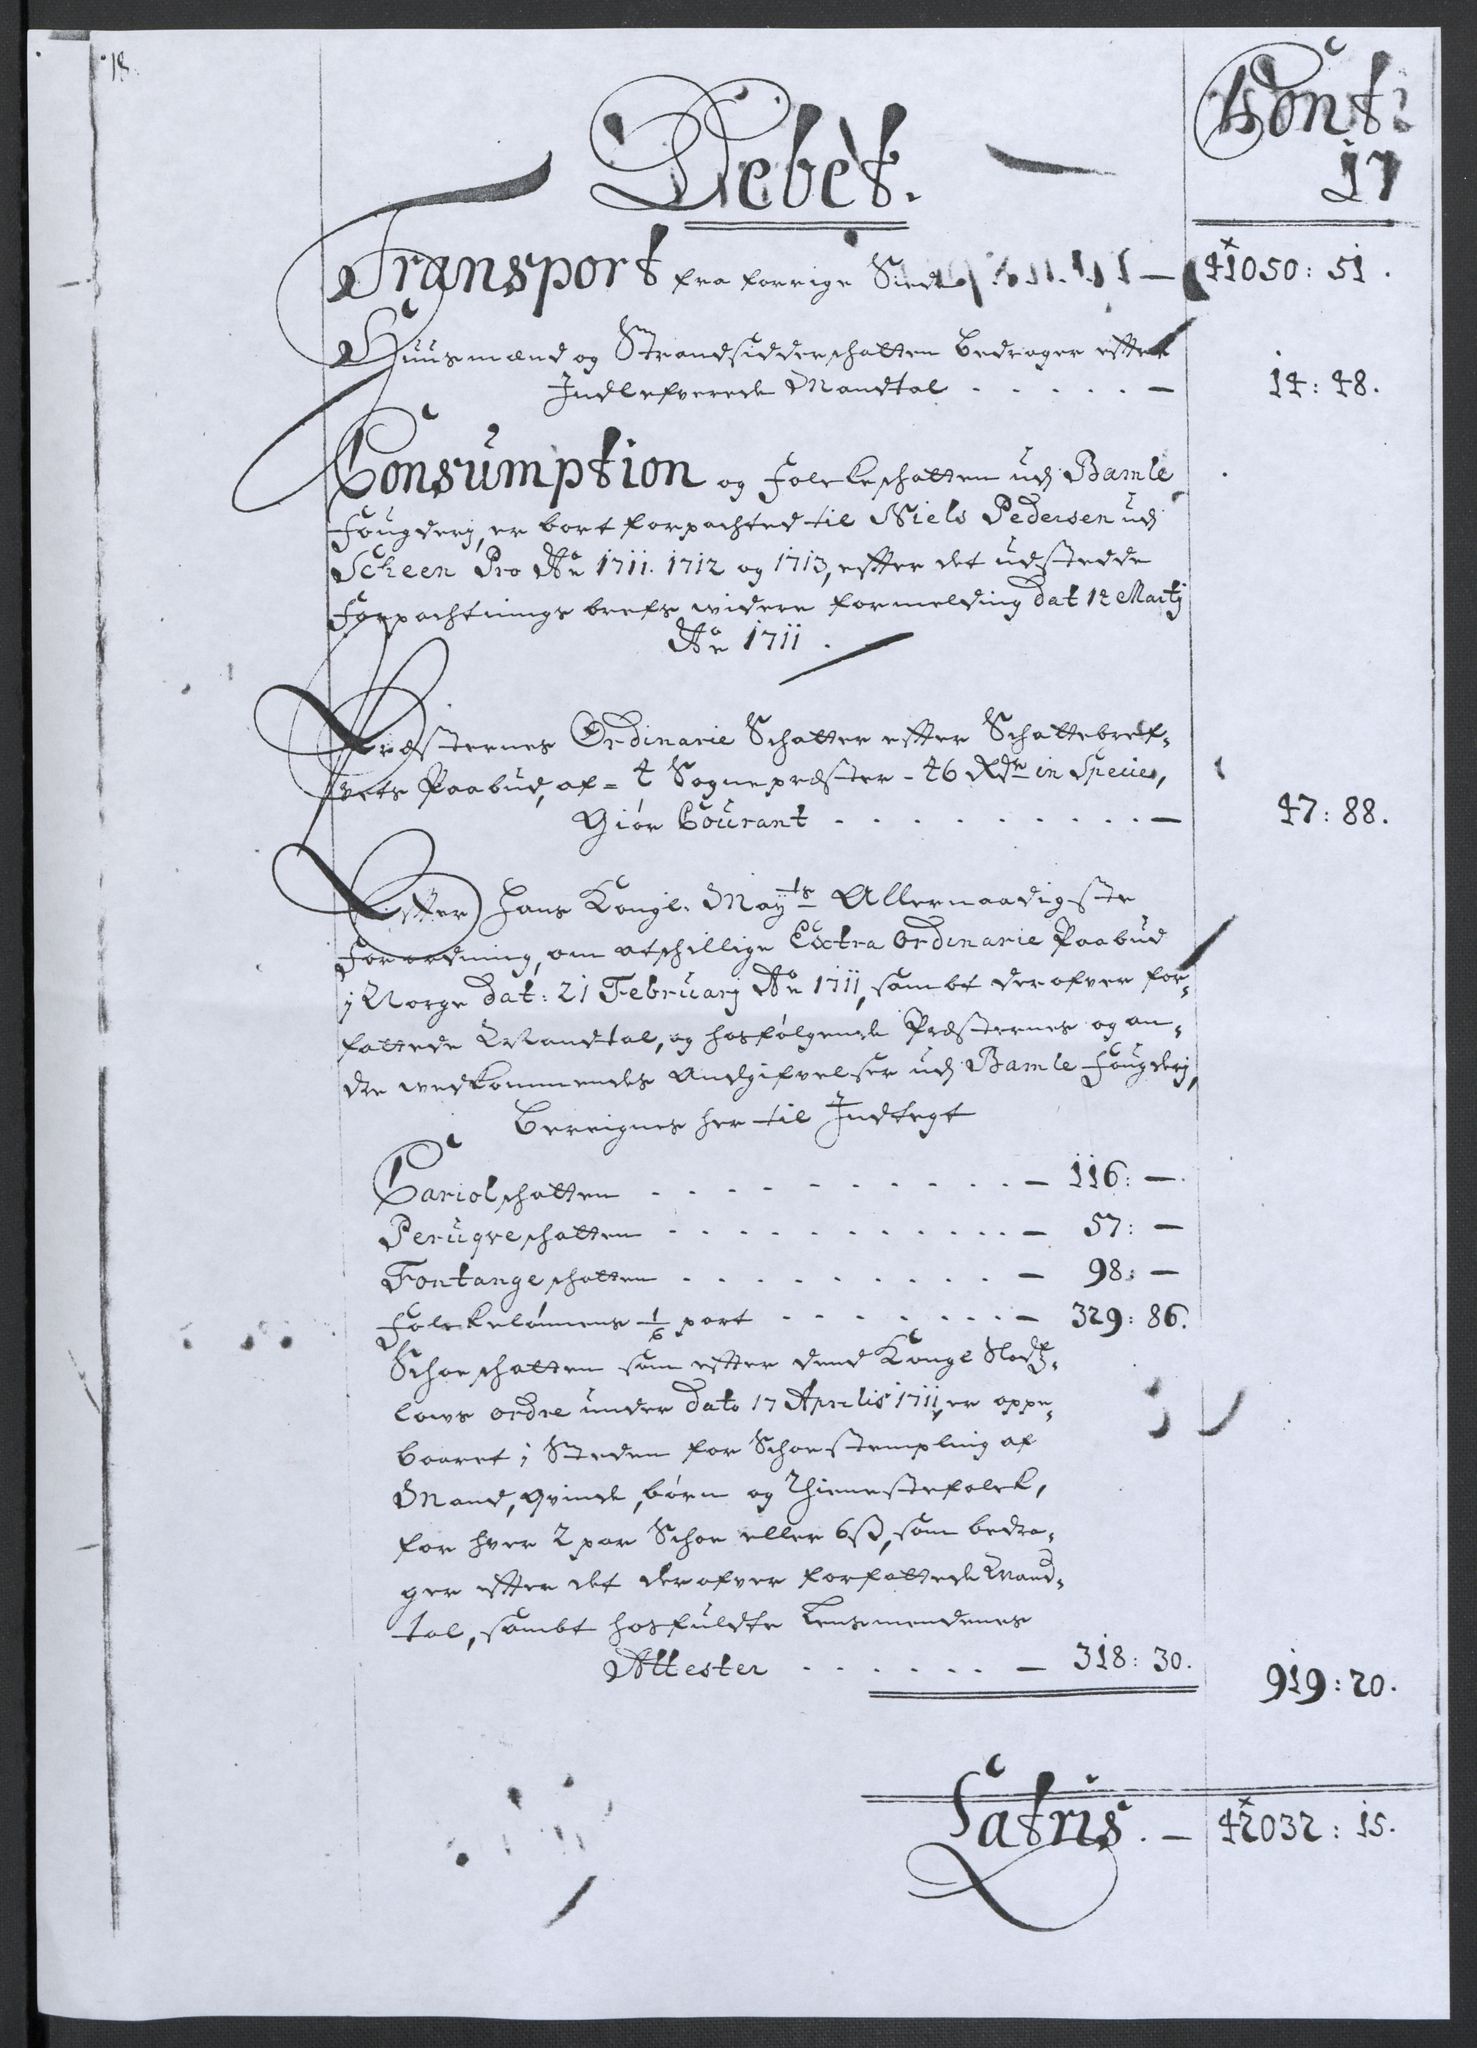 18.
Conti
17
Debet.
Transport fra forrige Siede — 41050: 51.
Huusmænd og Strandsidderschatten bedrager efter
Indlefverede Mandtal . . . . . — 14: 48.
Consumption og Folckeschatten udj Bamle
Fougderj, er bort forpachted til Niels Pedersen udj
Scheen Pro Ao 1711. 1712 og 1713, efter det udstedde
Forpachtnings brefs widere formelding dat 14 Martj
Ao 1711.
Præsternes Ordinarie Schatter efter Schattebref-
vets Paabud, af = 4 Sognepræster - 46 Rdr in Specie,
Giør Courant . . . . . . . . . — 47: 88.
Efter Hans Kongl. Mayts Allernaadigste
Forordning, om atschillige Extra Ordinarie Paabud
j Norge dat: 21 Februarj Ao 1711, sambt derofver for-
fattede Mandtal, og hosfølgende Præsternes og an-
dre wedkommendes Andgifvelser udj Bamle Fougderj,
Beregnes her til Indtegt
Cariolschatten . . . . . . . . . . — 116: —
Peruqveschatten . . . . . . . . . . — 57: —
Fontangeschatten . . . . . . . . . — 98: —
Folckelønnens 1/6 part . . . . . . . — 329: 86.
Schoeschatten som efter dend Kongl Slodtz-
lows ordre under dato 17 Aprilis 1711, er oppe-
baaret j Steden for Schoestempling af
Mand, qvinde, børn og Thienestefolck,
for hver 2 par Schoe eller 6 ß, som bedra-
ger efter det derofver forfattede Mand-
tal, sambt hosfuldte Lensmendenes
Attester . . . . . . — 318: 30. 919: 20.
Latris. — 42032: 15.